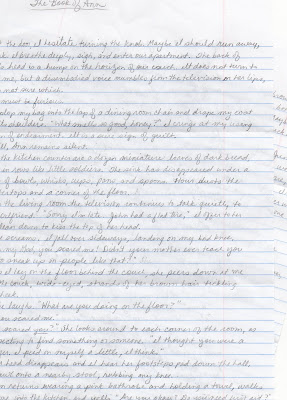 The Book of Ana
the door, I hesitate turning the knob. Maybe I should run away,
I breathe deeply, sigh, and enter our apartment. The back of
head is a bump on the horizon of our couch. She does not turn to
me, but a disembodied voice mumbles from the television or her lips,
not sure which.
must be furious.
my bag onto the top of a dining room chair and drape my coat
shoulders. "What smells so good, honey?" I cringe at my using
of endearment. It is a sure sign of guilt.
Ana remains silent.
the kitchen counter are a dozen miniature loaves of dark bread,
in rows like little soldiers. The sink has disappeared under a
of bowls, whisks, cups, forks and spoons. Flour dusts the
countertops and a corner of the floor.
the living room the television continues to talk quietly, to
"Sorry I'm late. John had a flat tire," I offer to her
lean down to kiss the top of her head.
screams, I fall over sideways, landing on my bad knee.
my God, you scared me! Didn't your mother ever teach you
sneak up on people like that?"
I lay on the floor behind the couch, she peers down at me
the couch, wide-eyed, strands of brown hair tickling
cheek.
laughs. "What are you doing on the floor?"
scared me."
scared you?" She looks around to each corner of the room, as
expecting to find something or someone. "I thought you were a
I peed on myself a little, I think."
head disappears and I hear her footsteps pad down the hall.
onto a nearby stool, rubbing my knee.
returns wearing a pink bathrobe and holding a towel, walks
into the kitchen and yells "Are you above